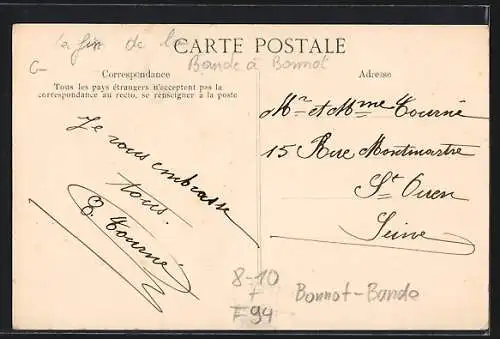 la fin de la
CARTE POSTALE
Bande à Bonnot
G-
Correspondance
Tous les pays étrangers n'acceptent pas la
correspondance au recto, se renseigner à la poste
Je vous embrasse
tous.
E. Tourné
Adresse
Mr et Mme Tourné
15 Rue Montmartre
St Ouen
Seine
8-10
+
F 94
Bonnot-Bande